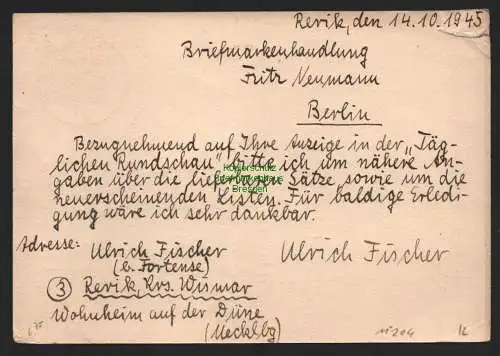 Rerik, den 14.10.1945
Briefmarkenhandlung
Fritz Neumann
Berlin
Bezugnehmend auf Ihre Anzeige in der „Täg-
lichen Rundschau" bitte ich um nähere An-
gaben über die lieferbaren Sätze sowie um die
neuerscheinenden Listen. Für baldige Erledi-
gung wäre ich sehr dankbar.
Adresse: Ulrich Fischer Ulrich Fischer
(b. Fortense)
③ Rerik, Krs. Wismar
Wohnheim auf der Düne
(Mecklbg)